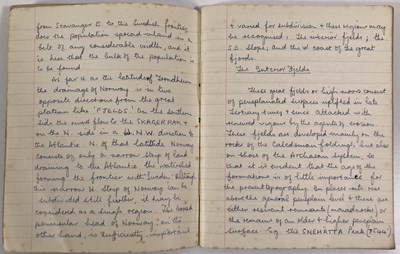 from Stavanger E to the Swedish frontier,
does the population spread inland in a
belt of any considerable width, and it
is here that the bulk of the population is
to be found.
As far N as the latitude of Trondheim
the drainage of Norway is in two
opposite directions from the great
plateau like "FJELDS". On the southern
side the rivers flow to the SKAGERRAK &
on the N. side in a N.W. direction to
the Atlantic. N. of that latitude Norway
consists of only a narrow strip of land
draining to the Atlantic the watershed
forming the frontier with Sweden. Although
this narrow N. strip of Norway can be
subdivided still further, it may be
considered as a single region. The broad
peninsular head of Norway, on the
other hand, is sufficiently important
& varied for subdivision & three regions may
be recognised; The interior fjelds; the
S.E. slopes; and the W coast of the great
fjords.
The Interior Fjelds
These great fjelds or high moors consist
of peneplained surfaces uplifted in late
Tertiary times & since attacked with
renewed vigour by the agents of erosion.
These fjelds are developed mainly on the
rocks of the Caledonian foldings, but also
on those of the Archaean system, so
that it is evident that the age of the
formations is of little importance for
the present topography. In places mts rise
above the general peneplain level & these are
either resistant remnants (monadnocks) or
the remains of an older & higher peneplain
surface. e.g. the SNEHATTA Peak (7544')